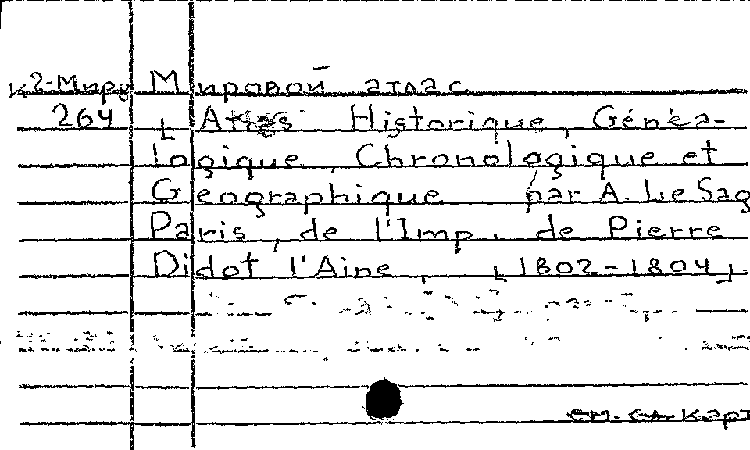 к2-Миру Мировой атлас
264 [Atlas Historique, Généa-
logique, Chronologique et
Geographique par A. Le Sag
Paris, de l'Imp. de Pierre
Didot l'Aine, [1802-1804]
см. сл. карт